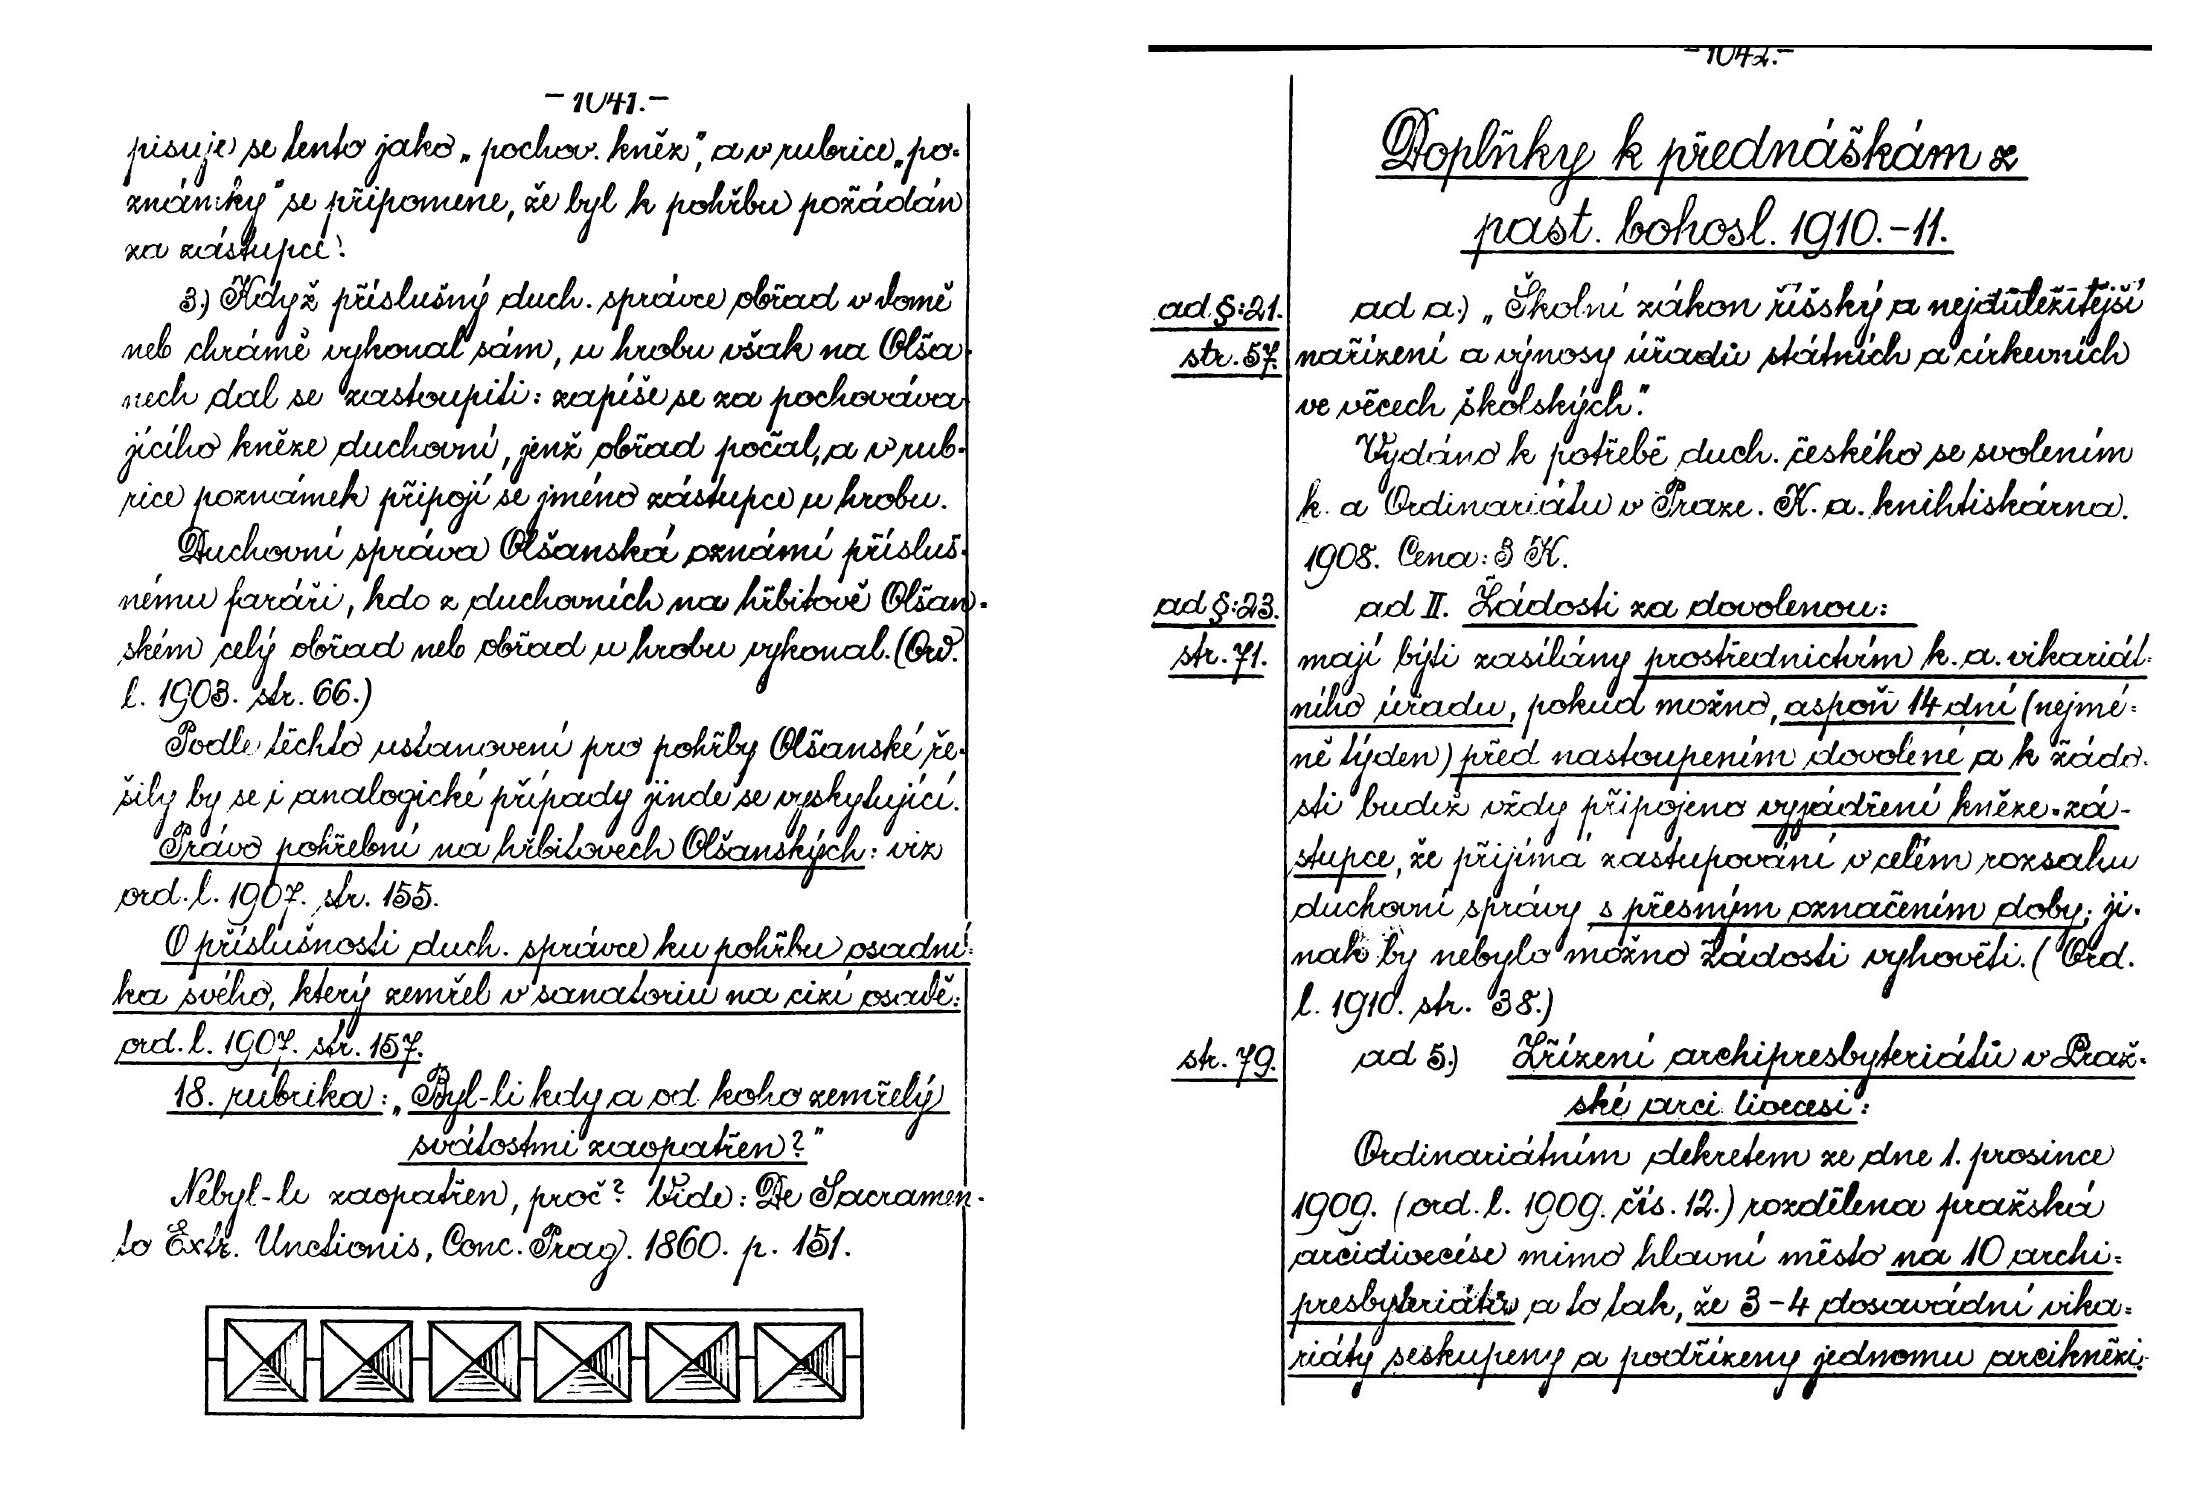 - 1041. -
pisuje se tento jako „pochov. kněz", a v rubrice „po-
známky" se připomene, že byl k pohřbu požádán
za zástupce.
3.) Když příslušný duch. správce obřad v domě
neb chrámě vykonal sám, u hrobu však na Olša-
nech dal se zastoupiti: zapíše se za pochováva-
jícího kněze duchovní, jenž obřad počal, a v rub-
rice poznámek připojí se jméno zástupce u hrobu.
Duchovní správa Olšanská oznámí přísluš-
nému faráři, kdo z duchovních na hřbitově Olšan-
ském celý obřad neb obřad u hrobu vykonal. (Ord.
l. 1903. str. 66.)
Podle těchto ustanovení pro pohřby Olšanské ře-
šily by se i analogické případy jinde se vyskytující.
Právo pohřební na hřbitovech Olšanských: viz
ord. l. 1907. str. 155.
O příslušnosti duch. správce ku pohřbu osadní-
ka svého, který zemřel v sanatoriu na cizí osadě:
ord. l. 1907. str. 157.
18. rubrika: „Byl-li kdy a od koho zemřelý
svátostmi zaopatřen?"
Nebyl-li zaopatřen, proč? Vide: De Sacramen-
to Extr. Unctionis, Conc. Prag. 1860. p. 151.
- 1042. -
Doplňky k přednáškám z
past. bohosl. 1910.-11.
ad §:21. ad a.) „Školní zákon říšský a nejdůležitější
str. 57. nařízení a výnosy úřadů státních a církevních
ve věcech školských."
Vydáno k potřebě duch. českého se svolením
k. a Ordinariátu v Praze. K. a. knihtiskárna.
1908. Cena: 3 K.
ad §:23. ad II. Žádosti za dovolenou:
str. 71. mají býti zasílány prostřednictvím k. a. vikariát-
ního úřadu, pokud možno, aspoň 14 dní (nejmé-
ně týden) před nastoupením dovolené a k žádo-
sti budiž vždy připojeno vyjádření kněze-zá-
stupce, že přijímá zastupování v celém rozsahu
duchovní správy s přesným označením doby; ji-
nak by nebylo možno žádosti vyhověti. (Ord.
l. 1910. str. 38.)
str. 79. ad 5.) Zřízení archipresbyteriátů v Praž-
ské arcidioecesi:
Ordinariátním dekretem ze dne 1. prosince
1909. (ord. l. 1909. čís. 12.) rozdělena pražská
arcidioecése mimo hlavní město na 10 archi-
presbyteriátů a to tak, že 3-4 dosavádní vika-
riáty seskupeny a podřízeny jednomu arciknězi.